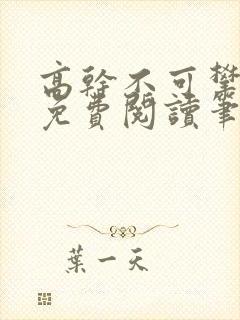 高幹不可攀
免費閱讀筆
葉一天